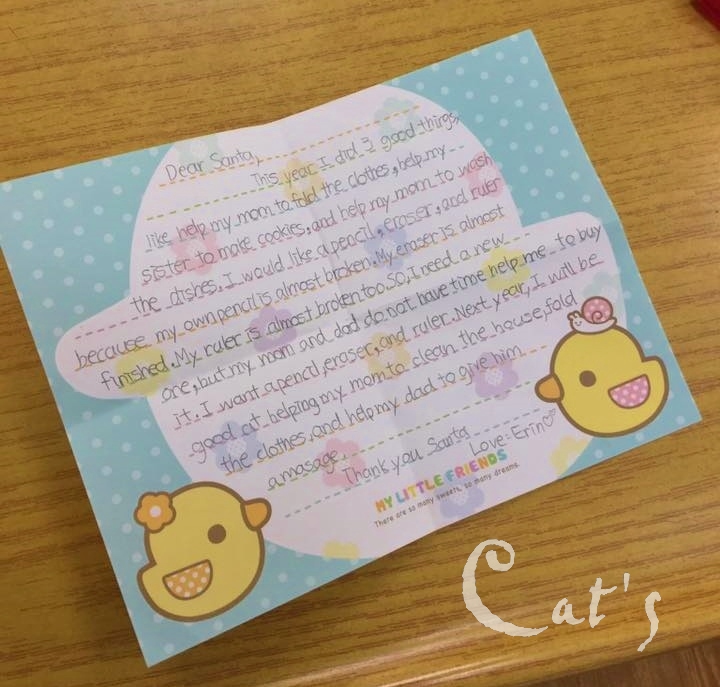 Dear Santa,
This year I did 3 good things,
like help my mom to fold the clothes, help my
sister to make cookies, and help my mom to wash
the dishes. I would like a pencil, eraser, and ruler
because my own pencil is almost broken. My eraser is almost
finished. My ruler is almost broken too so, I need a new
one, but my mom and dad do not have time help me to buy
it. I want a pencil, eraser, and ruler. Next year, I will be
good at helping my mom to clean the house, fold
the clothes, and help my dad to give him
a masage.
Thank you Santa
Love: Erin♡
MY LITTLE FRIENDS
There are so many sweets, so many dreams.
Cat's